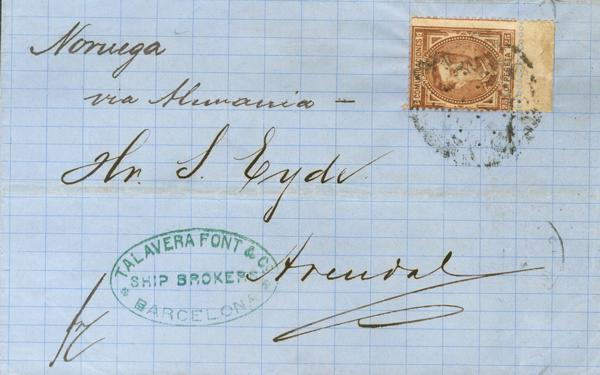 Noruega
via Alemania -
Hr. S. Eyde
Arendal
TALAVERA FONT & Cº
SHIP BROKERS
BARCELONA